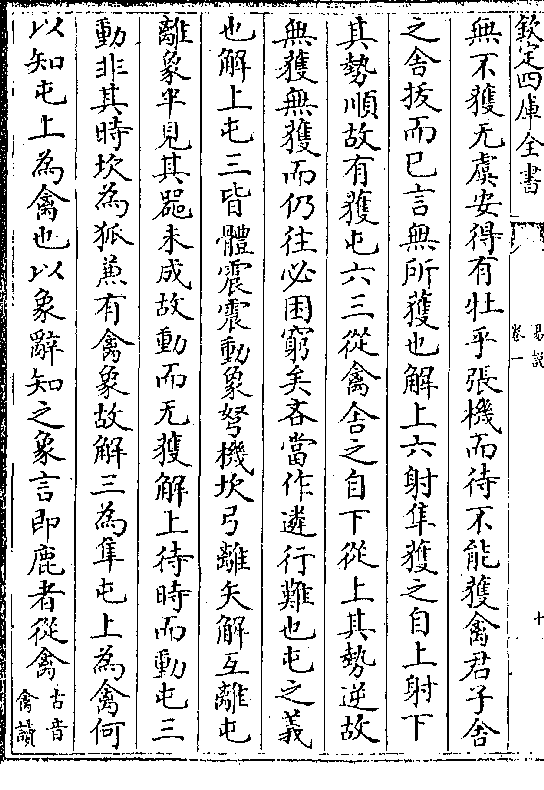 欽定四庫全書
易說
卷一
十
無不獲无虞安得有牡乎張機而待不能獲禽君子舍
之舍拔而已言無所獲也解上六射隼獲之自上射下
其勢順故有獲屯六三從禽舍之自下從上其勢逆故
無獲無獲而仍往必困窮矣吝當作遴行難也屯之義
也解上屯三皆體震震動象弩機坎弓離矢解互離屯
離象半見其器未成故動而无獲解上待時而動屯三
動非其時坎為狐兼有禽象故解三為隼屯上為禽何
以知屯上為禽也以象辭知之象言即鹿者從禽古音
禽讀